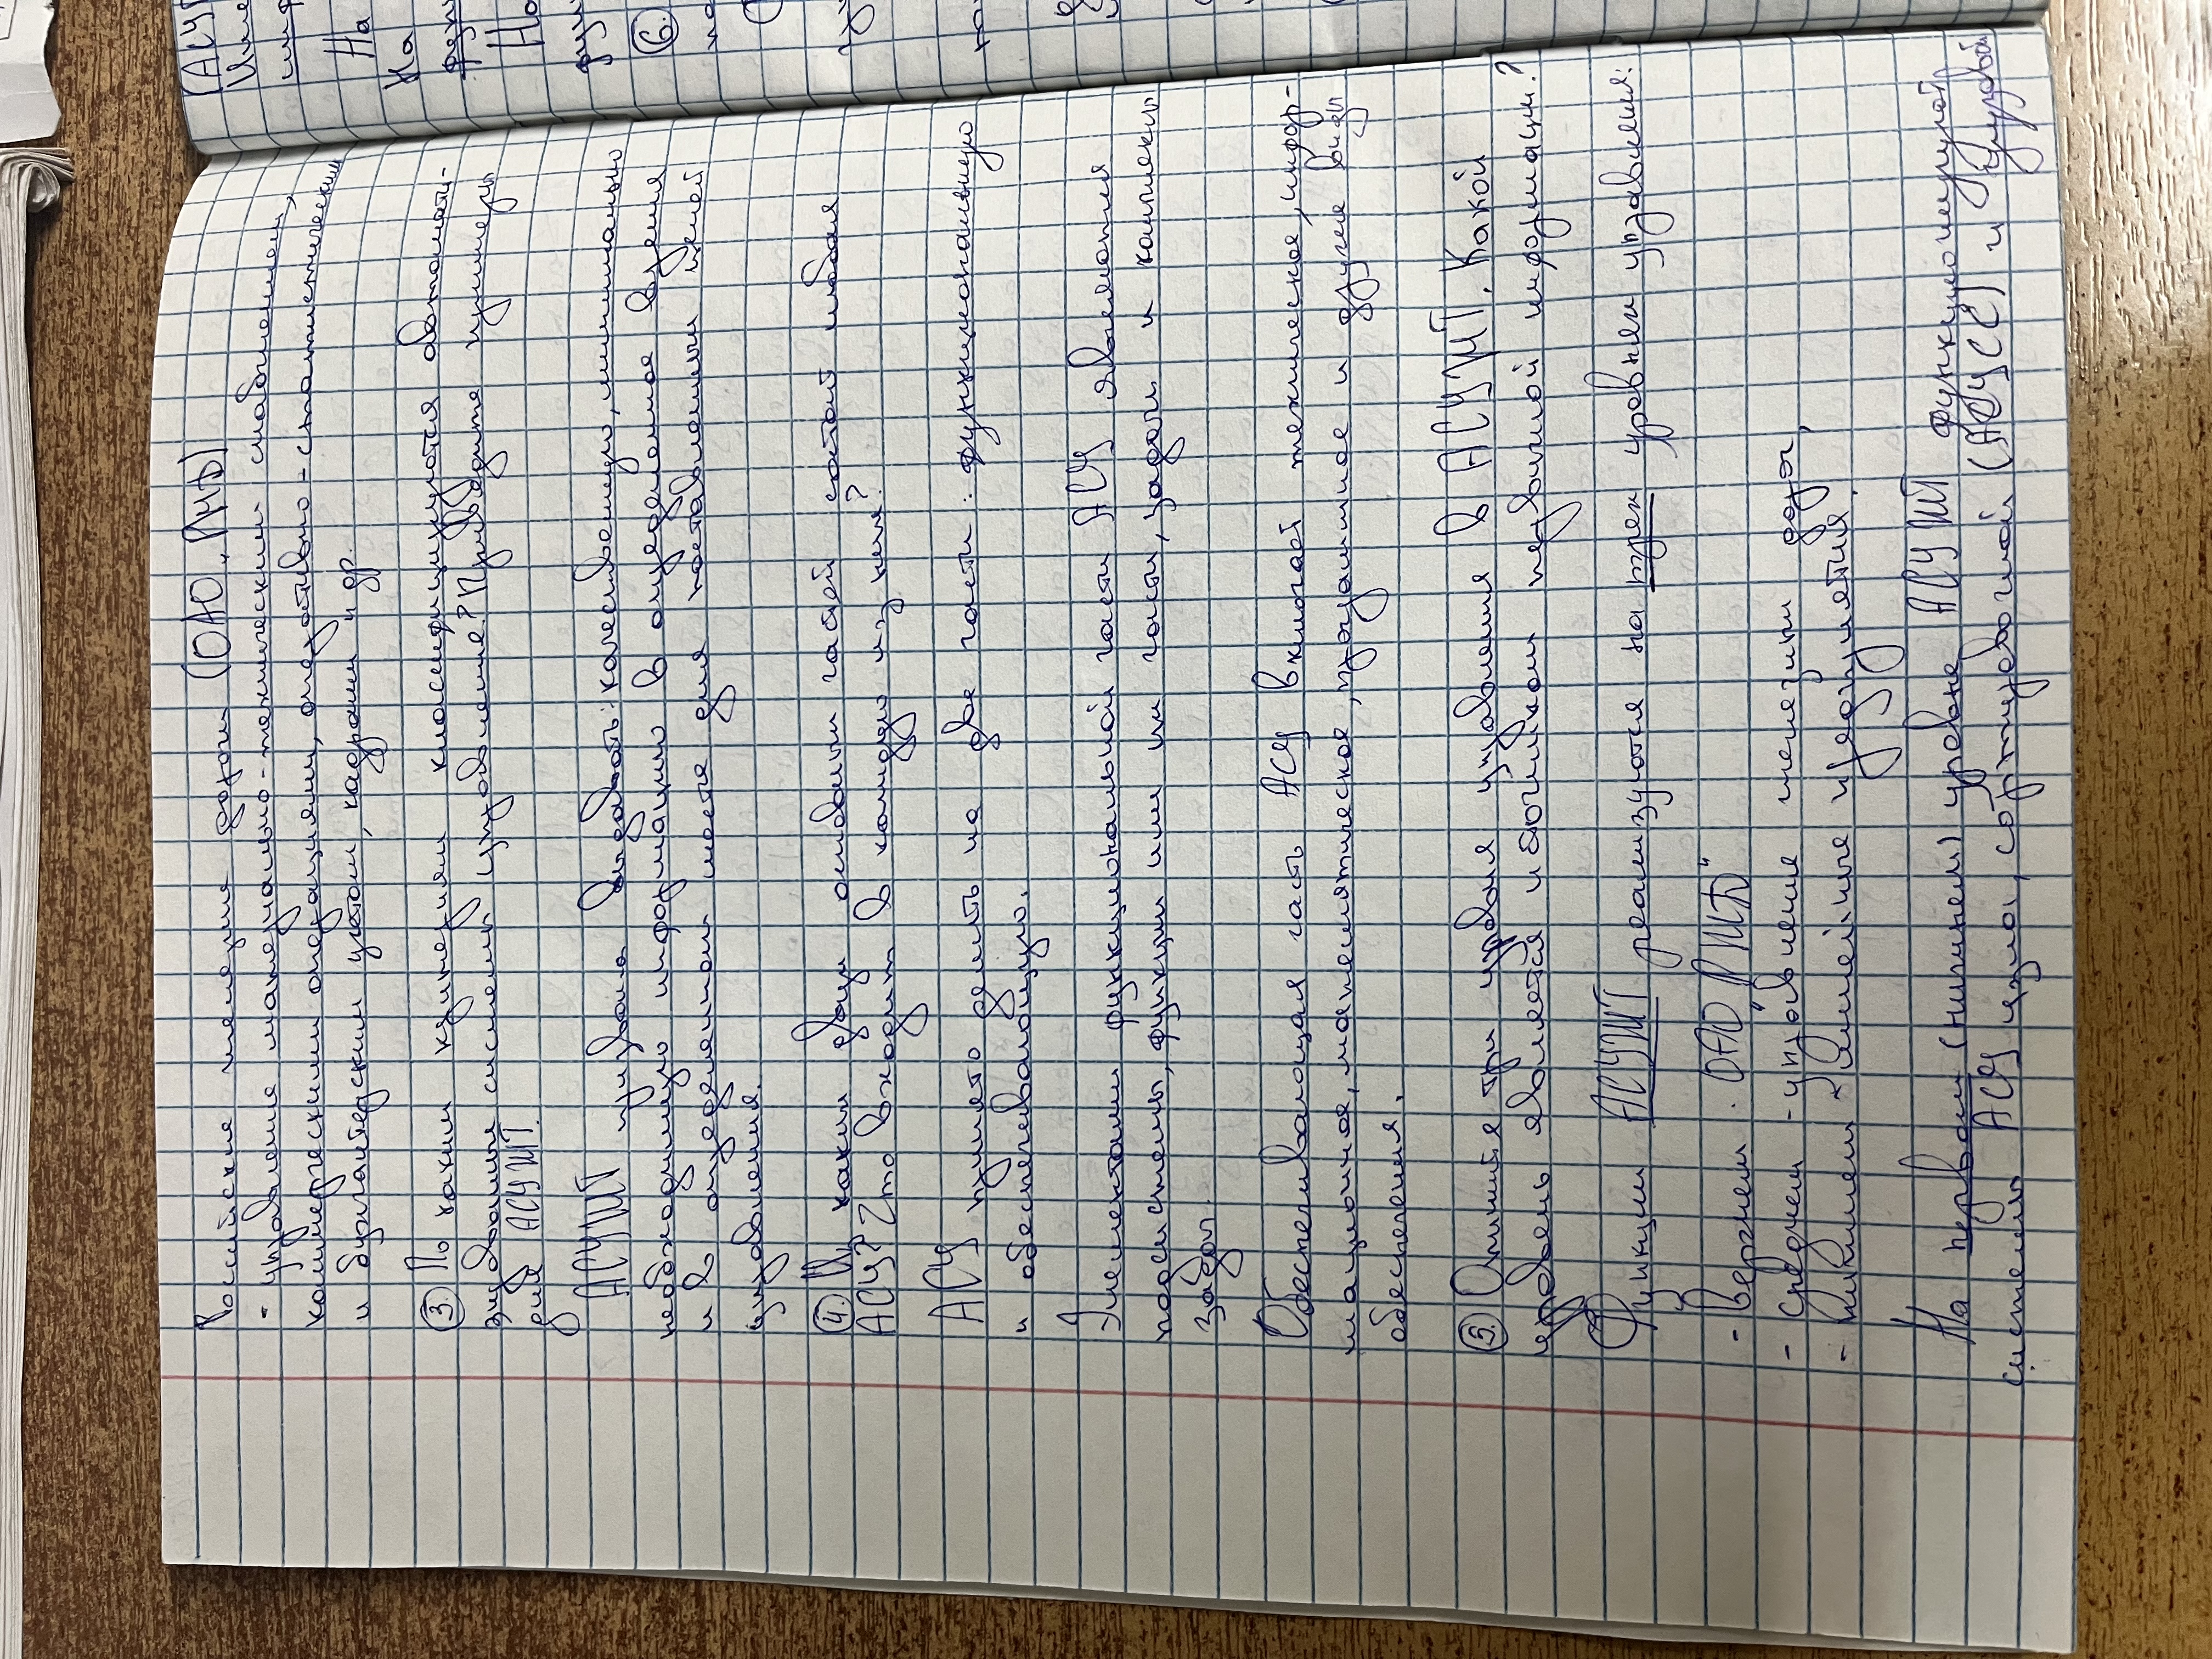 Российские железные дороги (ОАО „РЖД)
- управление материально-техническим снабжением,
коммерческими операциями, оперативно-статистическим
и бухгалтерским учётом, кадрами и др.
3. По каким критериям классифицируются автомати-
зированные системы управления? Приведите примеры
для АСУЖТ.
АСУЖТ призвана выдавать: качественную, минимально
необходимую информацию в определённое время
и в определённом месте для поставленных целей
управления.
4. Из каких двух основных частей состоит любая
АСУ? Что входит в каждую из них?
АСУ принято делить на две части: функциональную
и обеспечивающую.
Элементами функциональной части АСУ являются
подсистемы, функции или их части, задачи и комплексы
задач.
Обеспечивающая часть АСУ включает техническое, инфор-
мационное, математическое, программное и другие виды
обеспечения.
5. Опишите три уровня управления в АСУЖТ. Какой
уровень является источником первичной информации?
Функции АСУЖТ реализуются на трех уровнях управления:
- Верхнем - ОАО „РЖД"
- Среднем - управление железных дорог,
- Нижнем - Линейные предприятия.
На первом (нижнем) уровне АСУЖТ функционируют
системы АСУ узла, сортировочной (АСУСС) и грузовой
(АСУГ
На
На
Но
6.